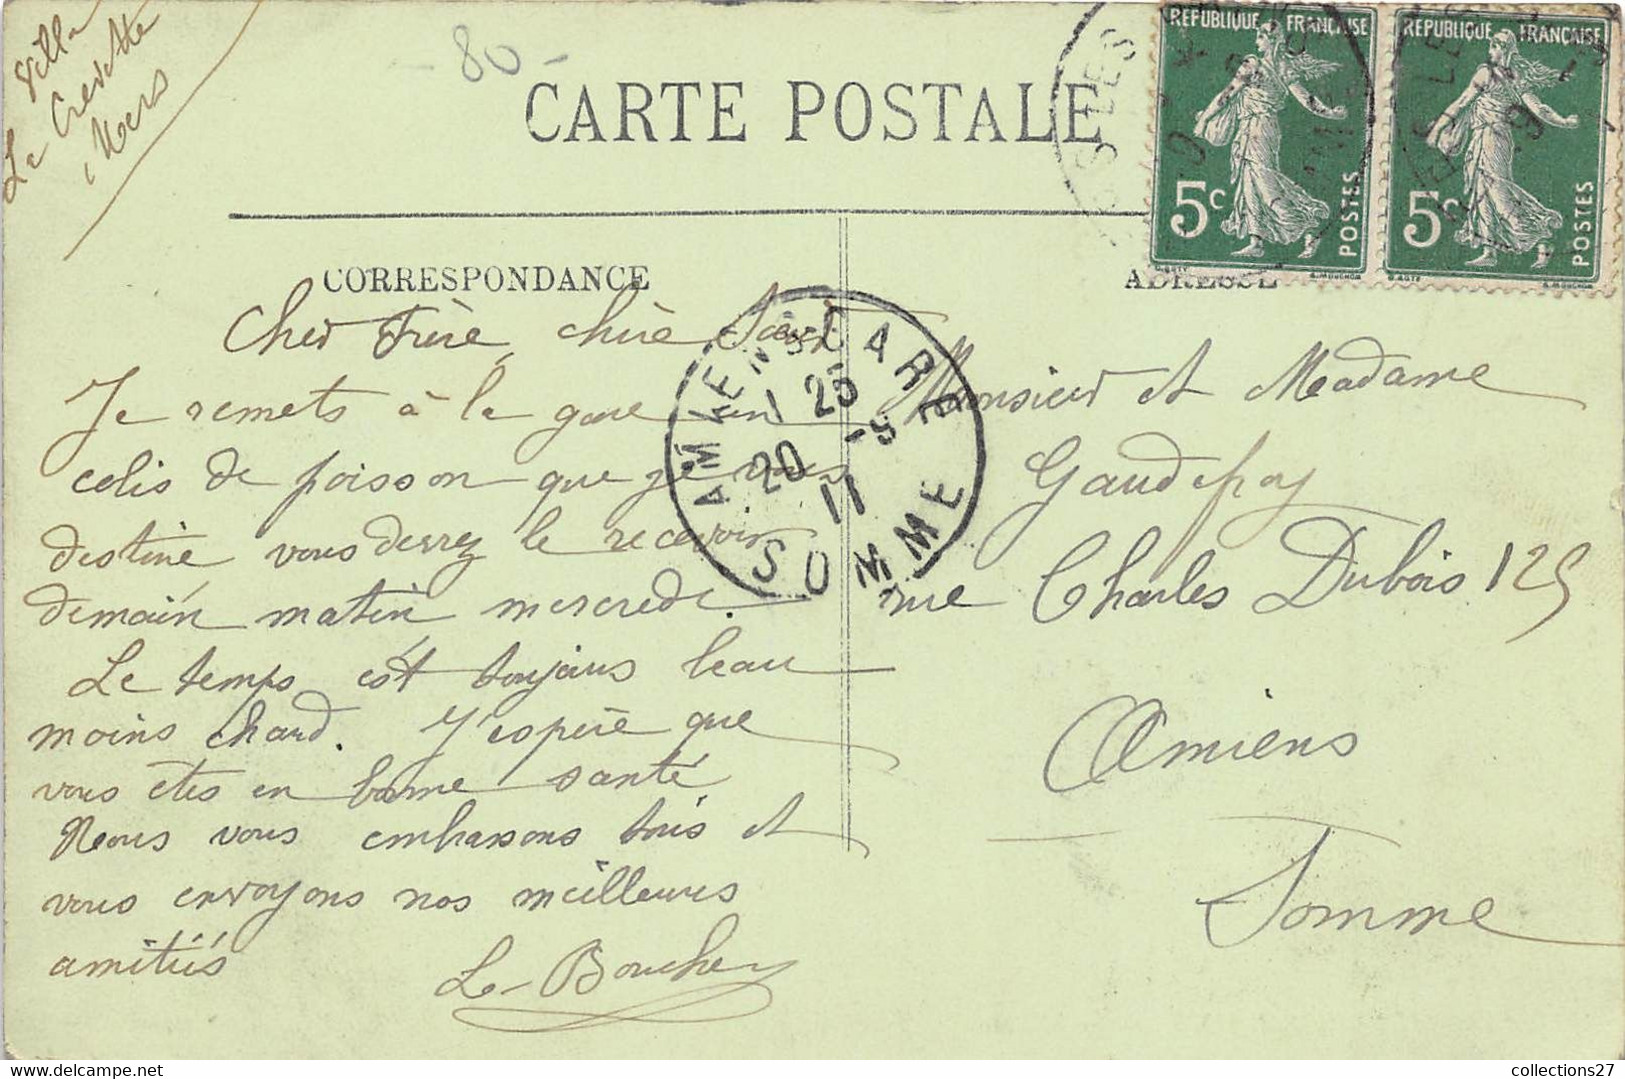 Villa
La Crevette
Mers
-80-
CARTE POSTALE
REPUBLIQUE FRANÇAISE
5c
POSTES
REPUBLIQUE FRANÇAISE
5c
POSTES
CORRESPONDANCE
ADRESSE
Cher Frère, chère Soeur
Je remets à la gare un
colis de poisson que je vous
destine vous devrez le recevoir
demain matin mercredi.
Le temps est toujours beau
moins chaud. J'espère que
vous êtes en bonne santé
Nous vous embrassons tous et
vous envoyons nos meilleures
amitiés
L. Boucher
AMIENS GARE
1 25
20 -9
11
SOMME
Monsieur et Madame
Gaudefroy
rue Charles Dubois 125
Amiens
Somme
collections27